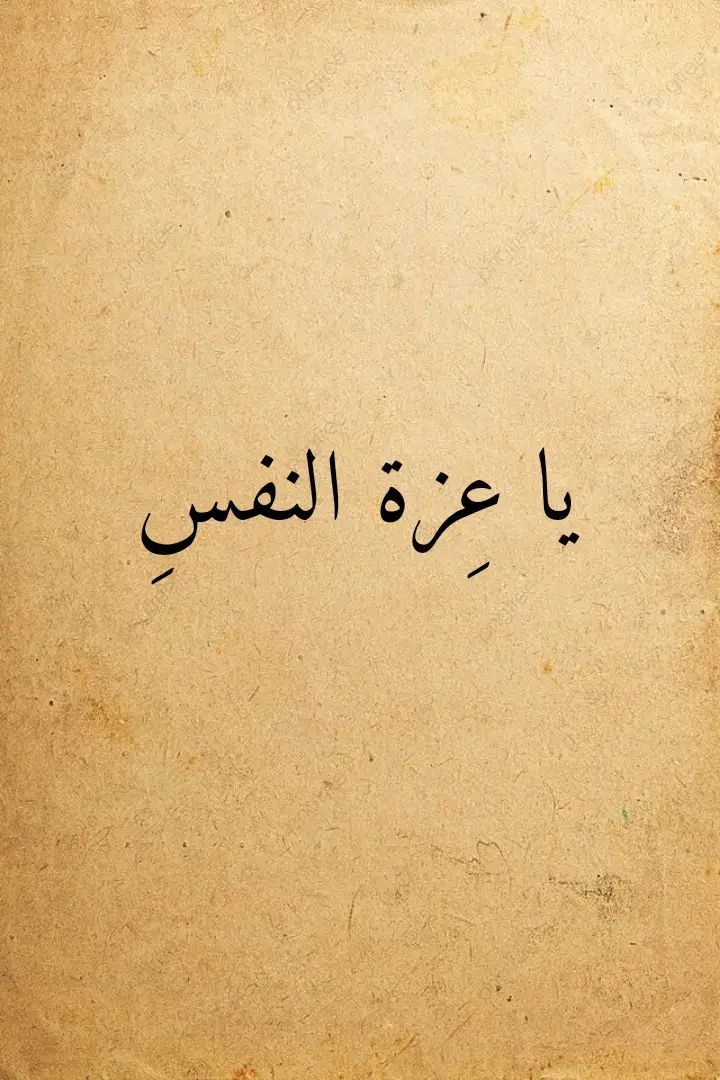 يا عِزة النفسِ